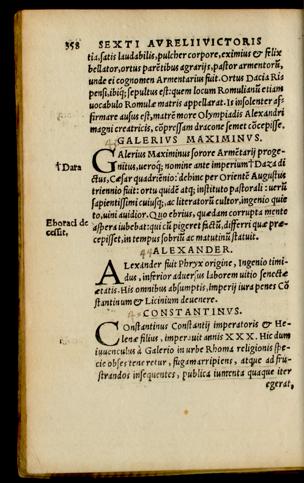 358 SEXTI AVRELII VICTORIS
tia, satis laudabilis, pulcher corpore, eximius & felix
bellator, ortus parētibus agrarijs, pastor armentorū,
unde ei cognomen Armentarius fuit. Ortus Dacia Ris
pensi, ibiq; sepultus est: quem locum Romulianū etiam
uocabulo Romulæ matris appellarat. Is insolenter af-
firmare ausus est, matrē more Olympiadis Alexandri
magni creatricis, cōpressam dracone semet cōcepisse.
GALERIVS MAXIMINVS.
†Dara
GAlerius Maximinus sorore Armētarij proge-
nitus, ueroq; nomine ante imperium †Daza di
ctus, Cæsar quadriēnio: dehinc per Orientē Augustus
triennio fuit: ortu quidē atq; instituto pastorali: uerū
sapientissimi cuiusq;, ac literatorū cultor, ingenio quie
to, uini auidior. Quo ebrius, quædam corrupta mente
Eboraci de
cessit.
aspera iubebat: qui cū pigeret factū, differri quæ præ-
cepisset, in tempus sobriū ac matutinū statuit.
ALEXANDER.
ALexander fuit Phryx origine, Ingenio timi-
dus, inferior aduersus laborem uitio senectæ
ætatis. His omnibus absumptis, imperij iura penes Cō
stantinum & Licinium deuenere.
CONSTANTINVS.
COnstantinus Constantij imperatoris & He-
lenæ filius, imperauit annis XXX. Hic dum
iuuenculus à Galerio in urbe Rhoma religionis spe-
cie obses teneretur, fugam arripiens, atque ad fru-
strandos insequentes, publica iumenta quaque iter
egerat,